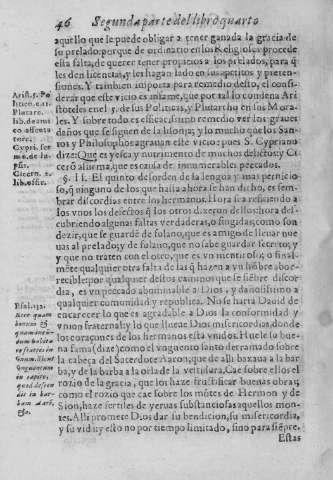 46 Segunda parte del libro quarto
aquello que le puede obligar a tener ganada la gracia de
su prelado: porque de ordinario en los Religiosos procede
esta falta, de querer tener propicios a los prelados, para q̃
les den licencias, y les hagan lado en sus apetitos y preten-
siones. Y tambien importa para remedio desto, el consi-
derar que este vicio es infame, que por tal lo condena Ari
stoteles en el 5. de sus Politicas, y Plutarcho en sus Mora-
les. Y sobre todo es eficacissimo remedio ver los graues
daños que se siguen de la lisonja; y lo mucho que los San-
tos y Philosophos agrauan este vicio: pues S. Cypriano
dize: Que es yesca y nutrimento de muchos delictos, y Ci
cero afirma, que es causa de innumerables peccados.
§. II. El quinto desorden de la lengua y mas pernicio-
so, q̃ ninguno de los que hasta ahora se han dicho, es sem-
brar discordias entre los hermanos. Hora sea refiriendo a
los vnos los defectos q̃ los otros dixeron dellos: hora des-
cubriendo algunas faltas verdaderas, o fingidas; como son
dezir, que se guarde de fulano, que es amigo de lleuar nue
uas al prelado; y de fulano, que no sabe guardar secreto; y
y que no traten con el otro, que es vn mentiroso; o final-
mẽte qualquier otra falta de las q̃ hazen a vn hõbre abor-
recible: por qualquier destos caminos que se siẽbre discor-
dia, es vn peccado abominable a Dios, y dañosissimo a
qualquier comunidad y republica. No se harta Dauid de
encarecer lo que es agradable a Dios la conformidad y
vnion fraternal: y lo que llueue Dios misericordias, donde
los coraçones de los hermanos esta vnidos. Huele su bue
na fama (dize) como el vnguento santo derramado sobre
la cabeça del Sacerdote Aaron, que de alli baxaua a la bar-
ba, y de la barba a la orla de la vestidura. Cae sobre ellos el
rozio de la gracia, que los haze fructificar buenas obras;
como el rozio que cae sobre los mõtes de Hermon y de
Sion, haze fertiles de yeruas substanciosas aquellos mon-
tes. Alli promete Dios dar su bendicion, su misericordia,
y su vida; y esto no por tiempo limitado, sino para siẽpre.
Estas
Arist. 5. Po
litico. c. 11.
Plutarc.
lib. de amico
Cypri. ser-
mo. de
Cicero. 2.
lib. offic.
Psal. 132.
Ecce quam
bonum &
quam iucũ-
dum habita
re fratres in
vnum. Sicut
vnguentum
in capite,
quod descẽ
dit in bar-
bam Aarõ,
&c.